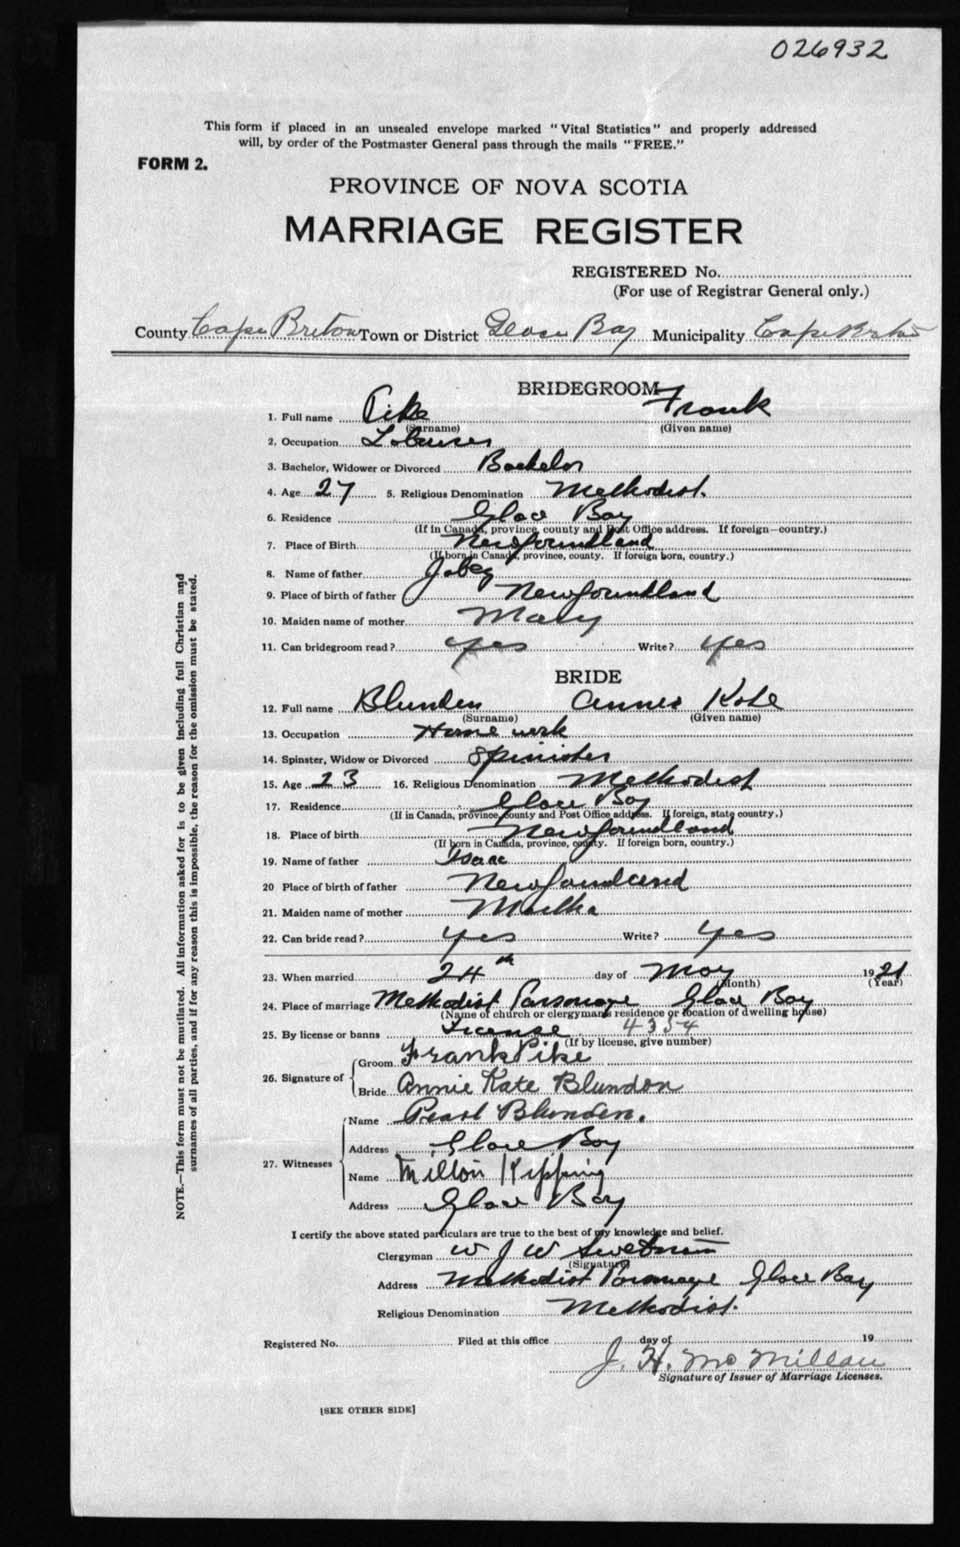 026932
This form if placed in an unsealed envelope marked "Vital Statistics" and properly addressed
will, by order of the Postmaster General pass through the mails "FREE."
FORM 2.
PROVINCE OF NOVA SCOTIA
MARRIAGE REGISTER
REGISTERED No.
(For use of Registrar General only.)
County Cape Breton Town or District Glace Bay Municipality Cape Breton
BRIDEGROOM
1. Full name Pike Frank
(Surname) (Given name)
2. Occupation Labourer
3. Bachelor, Widower or Divorced Bachelor
4. Age 27 5. Religious Denomination Methodist.
6. Residence Glace Bay
(If in Canada, province, county and Post Office address. If foreign—country.)
7. Place of Birth Newfoundland
(If born in Canada, province, county. If foreign born, country.)
8. Name of father Jobey
9. Place of birth of father Newfoundland
10. Maiden name of mother Mary
11. Can bridegroom read? yes Write? yes
BRIDE
12. Full name Blunden Annie Kate
(Surname) (Given name)
13. Occupation Home work
14. Spinster, Widow or Divorced Spinister
15. Age 23 16. Religious Denomination Methodist
17. Residence Glace Bay
(If in Canada, province, county and Post Office address. If foreign, state country.)
18. Place of birth Newfoundland
(If born in Canada, province, county. If foreign born, country.)
19. Name of father Isaac
20 Place of birth of father Newfoundland
21. Maiden name of mother Martha
22. Can bride read? yes Write? yes
23. When married 24th day of May 1921
(Month) (Year)
24. Place of marriage Methodist Parsonage Glace Bay
(Name of church or clergyman's residence or location of dwelling house)
25. By license or banns License 4354
(If by license, give number)
26. Signature of Groom Frank Pike
Bride Annie Kate Blundon
27. Witnesses Name Pearl Blunden.
Address Glace Bay
Name Milton Kipping
Address Glace Bay
I certify the above stated particulars are true to the best of my knowledge and belief.
Clergyman W J W Swetnam
(Signature)
Address Methodist Parsonage Glace Bay
Religious Denomination Methodist.
Registered No. Filed at this office day of 19
J. H. McMillan
Signature of Issuer of Marriage Licenses.
[SEE OTHER SIDE]
NOTE.—This form must not be mutilated. All information asked for is to be given including full Christian and
surnames of all parties, and if for any reason this is impossible, the reason for the omission must be stated.